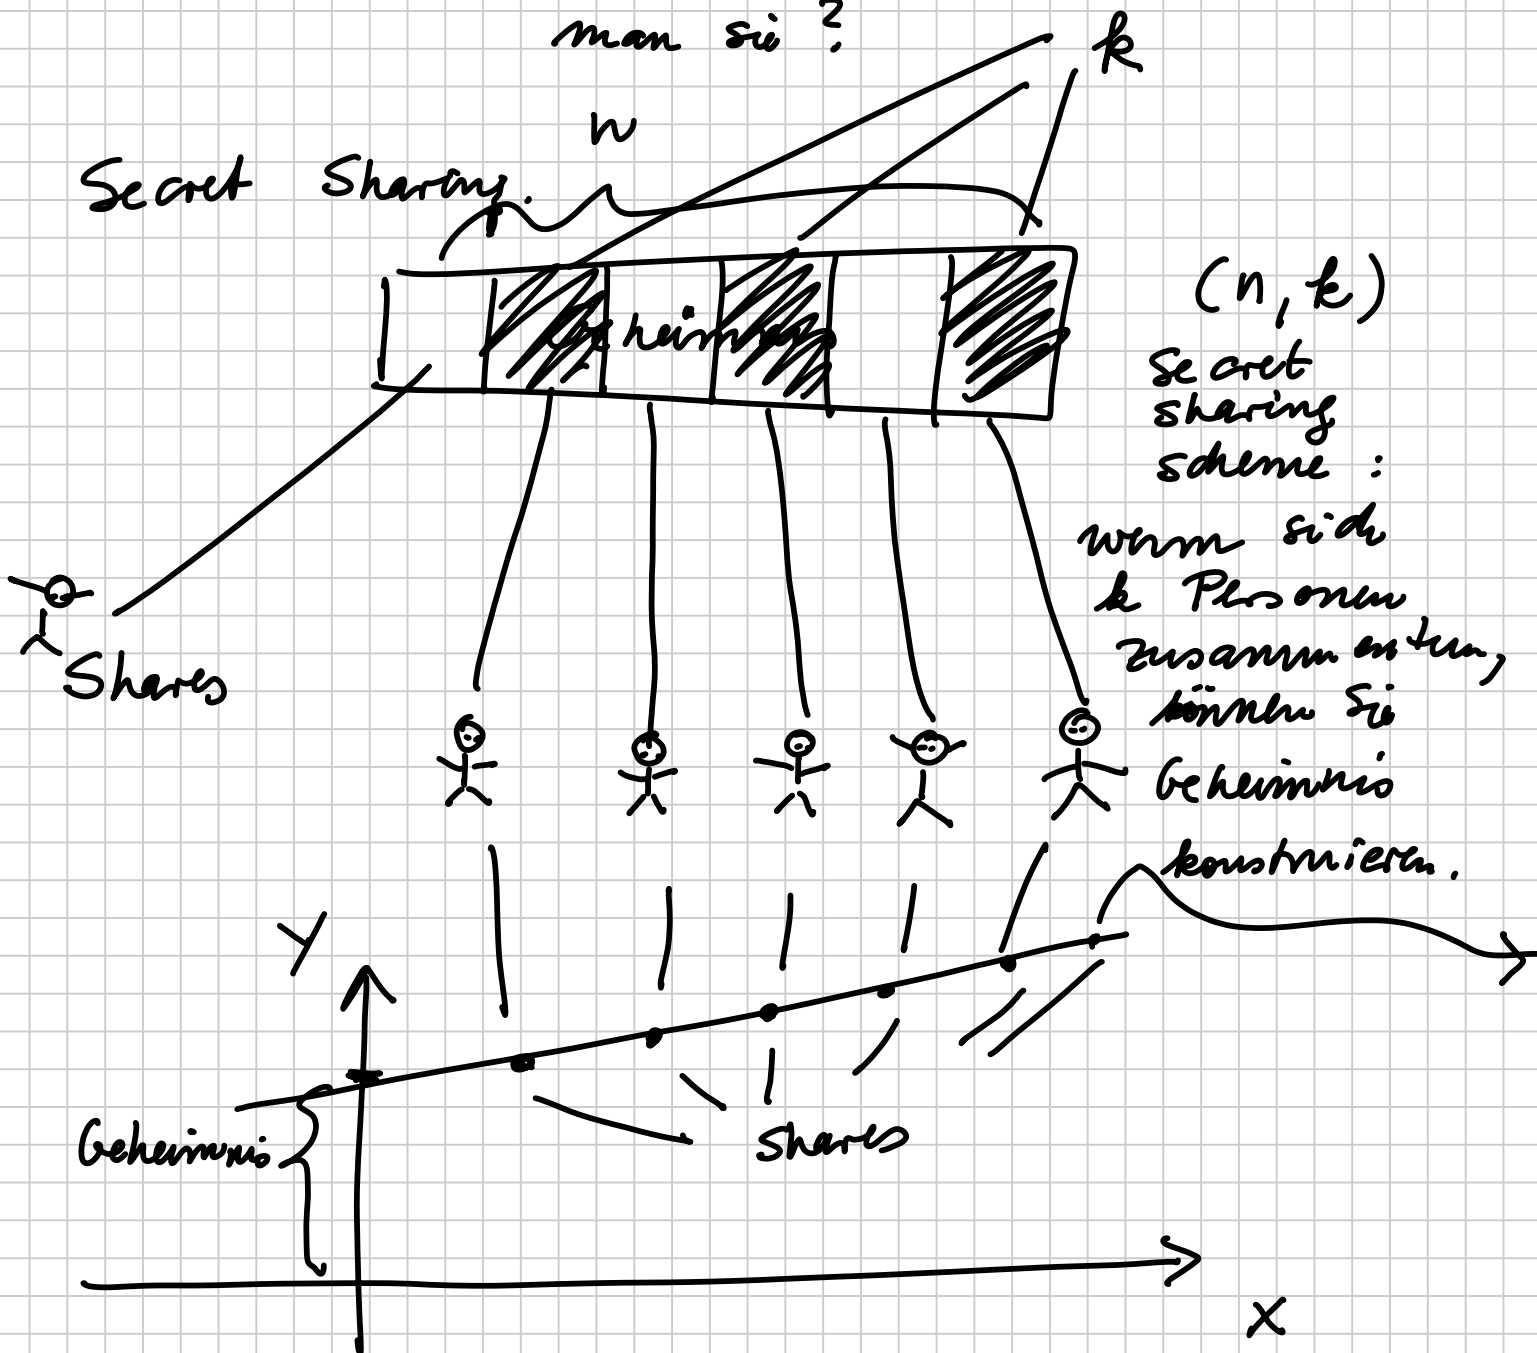 man sie?
k
n
Secret Sharing.
Geheimnis
(n, k)
Secret
sharing
scheme :
wenn sich
k Personen
zusammentun,
können Sie
Geheimnis
konstruieren.
Shares
y
Geheimnis
shares
x